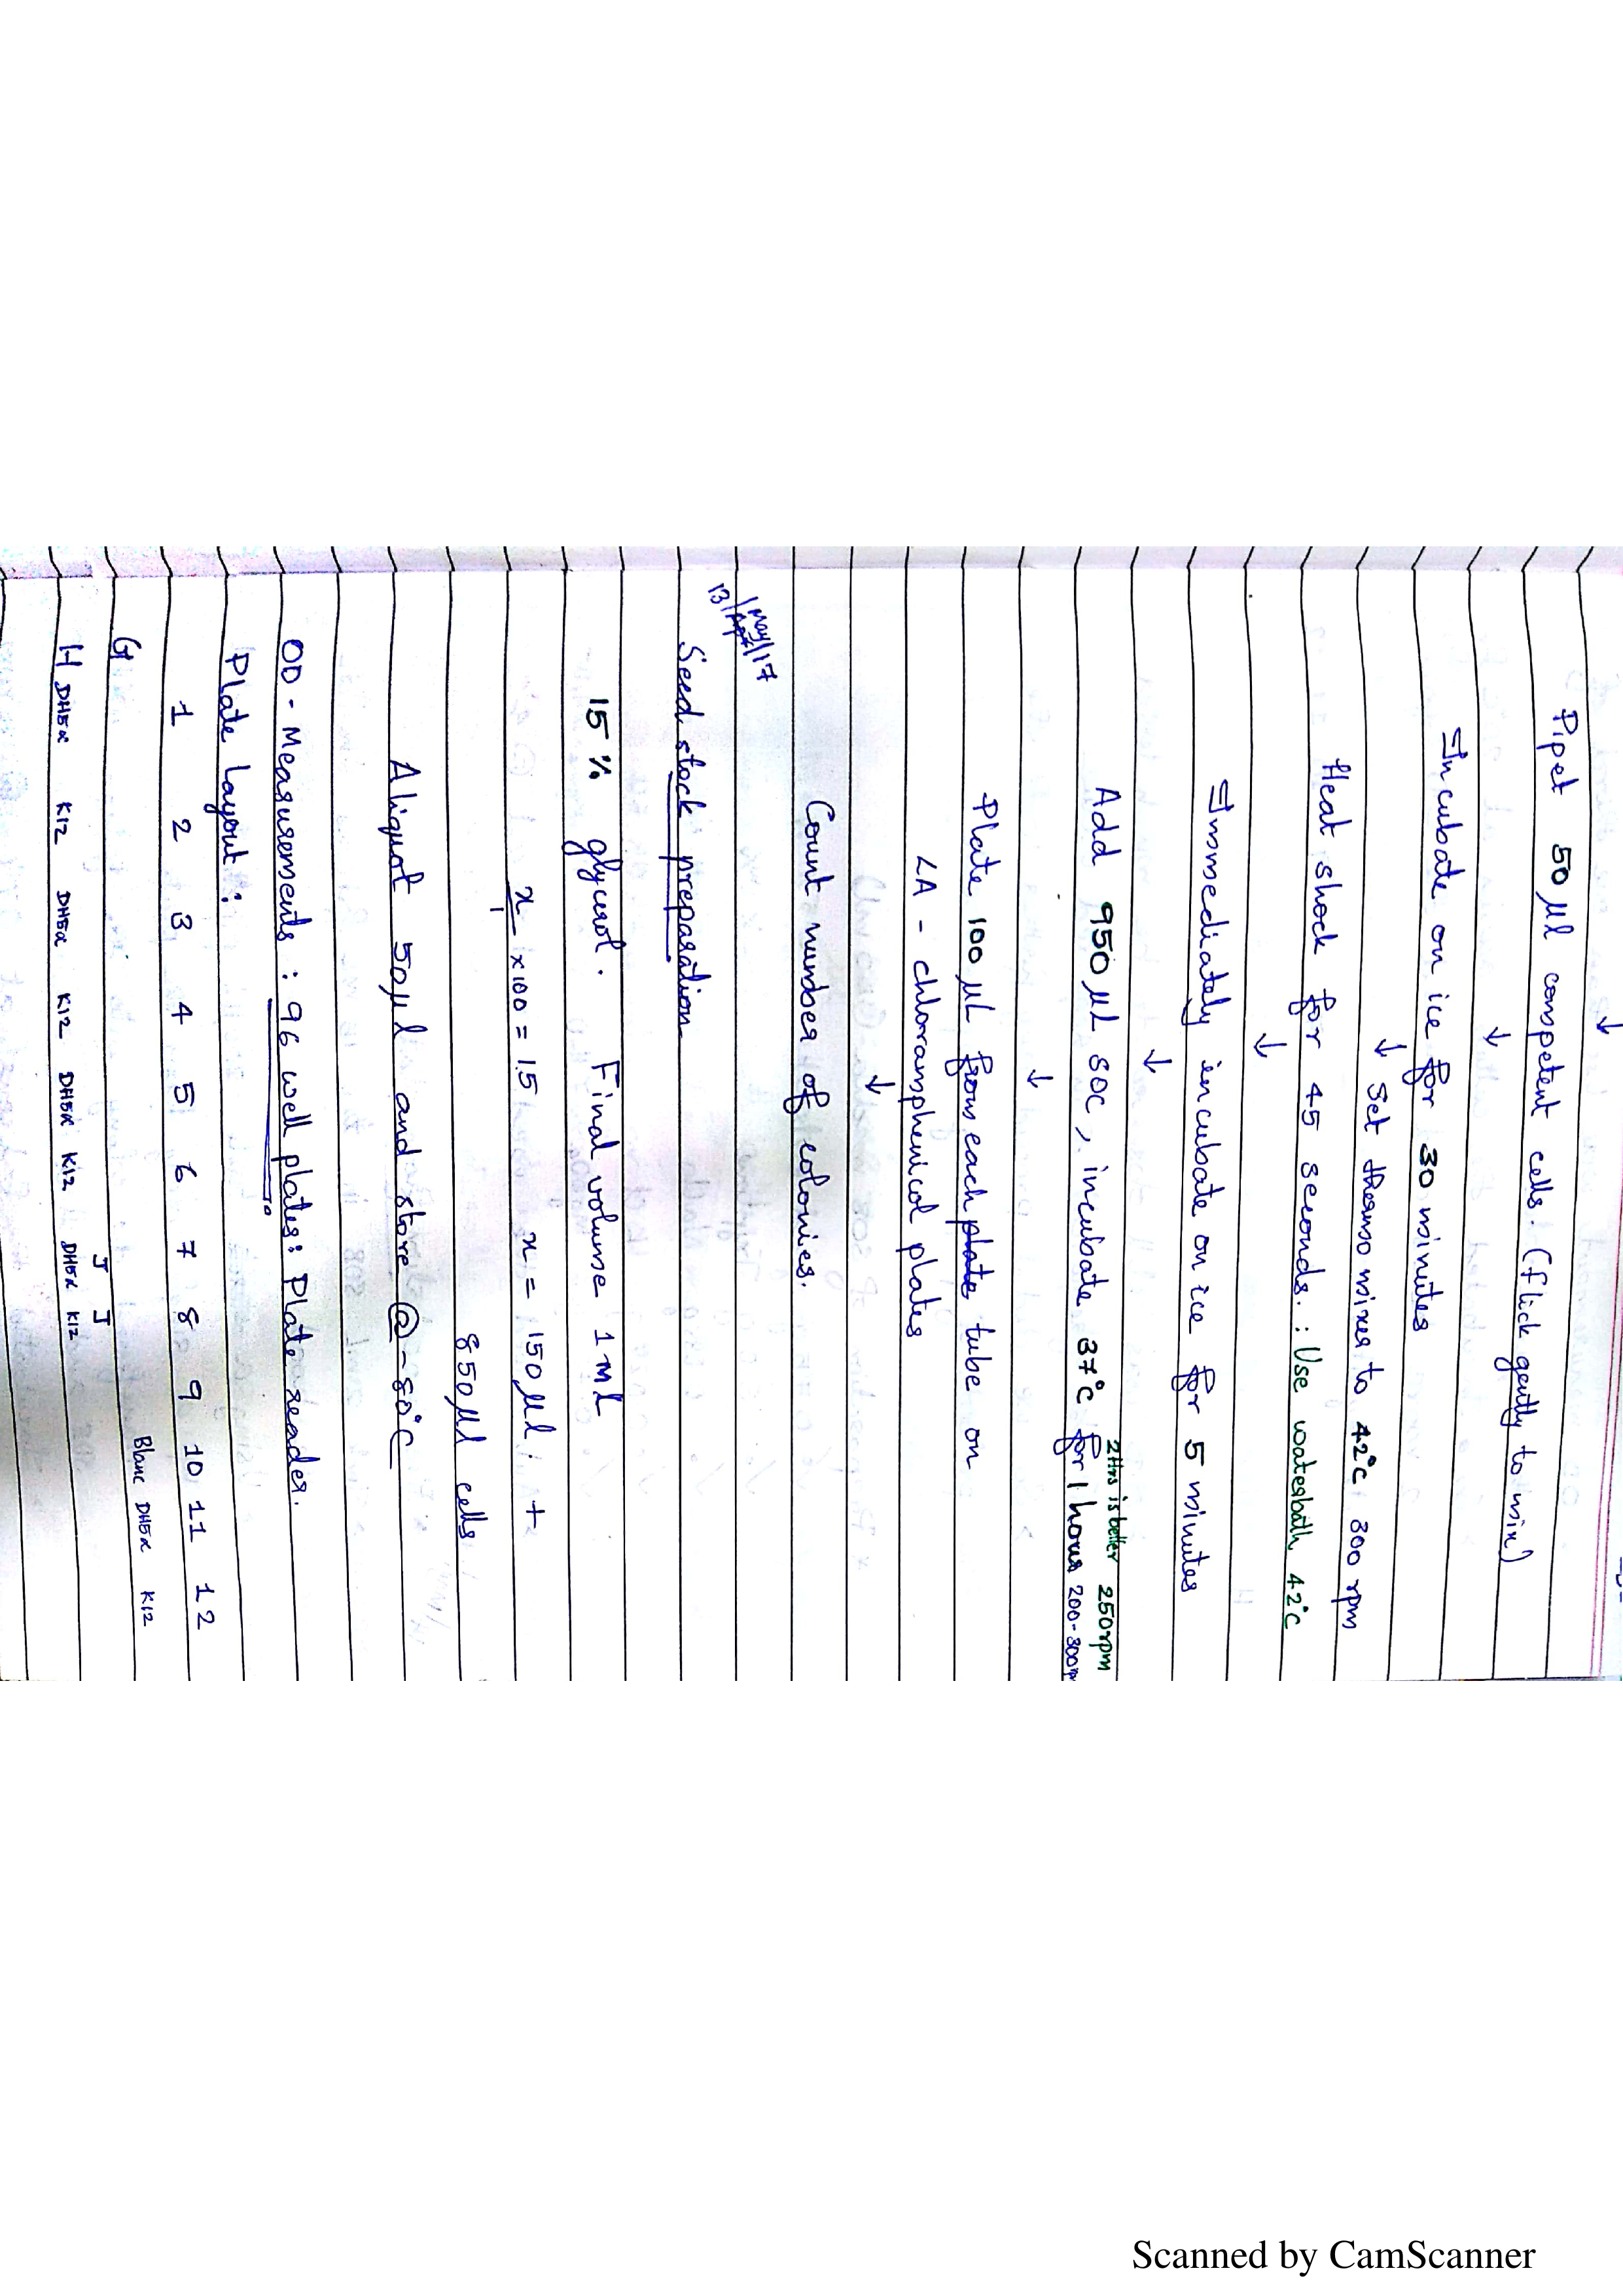 ↓
Pipet 50 µl competent cells. (flick gently to mix)
↓
Incubate on ice for 30 minutes
↓ Set thermomixer to 42°C 300 rpm
Heat shock for 45 seconds. : Use waterbath 42°C
↓
Immediately incubate on ice for 5 minutes
↓
2Hrs is better 250rpm
Add 950 µL SOC, incubate 37°C for 1 hour 200-300rpm
↓
Plate 100 µL from each plate tube on
LA - chloramphenicol plates
↓
Count number of colonies.
13/Apr/May/17
Seed stock preparation
15 % glycerol. Final volume 1 ml
x/1 × 100 = 15 x = 150 µl. +
850 µl cells
Aliquot 50 µl and store @ -80°C
OD - Measurements : 96 well plates: Plate reader.
Plate Layout :
1 2 3 4 5 6 7 8 9 10 11 12
G J J Blanc DH5α K12
H DH5α K12 DH5α K12 DH5α K12 DH5α K12
Scanned by CamScanner